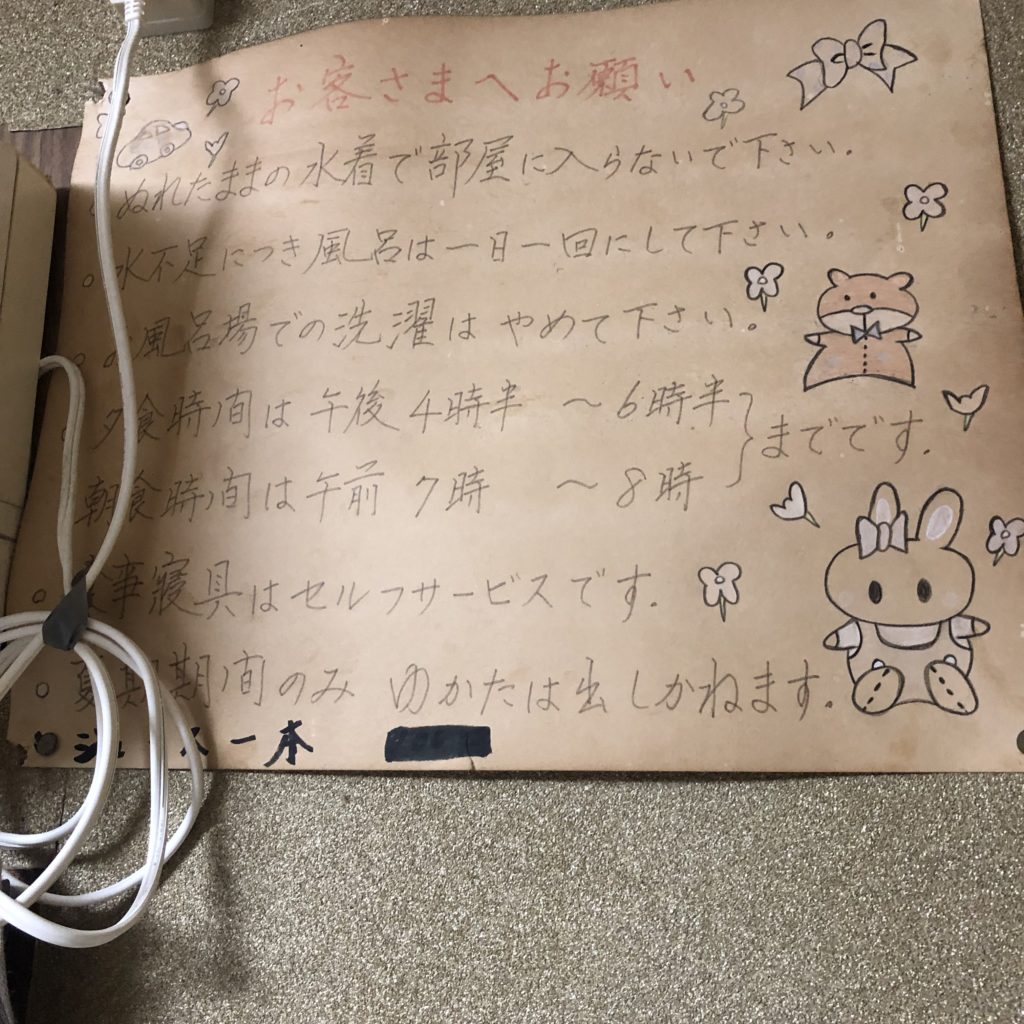 お客さまへお願い
ぬれたままの水着で部屋に入らないで下さい.
。水不足につき風呂は一日一回にして下さい。
。お風呂場での洗濯はやめて下さい。
。夕食時間は午後4時半 〜6時半
朝食時間は午前7時 〜8時
} までです.
。食事寝具はセルフサービスです.
。夏期期間のみ ゆかたは出しかねます.
一本